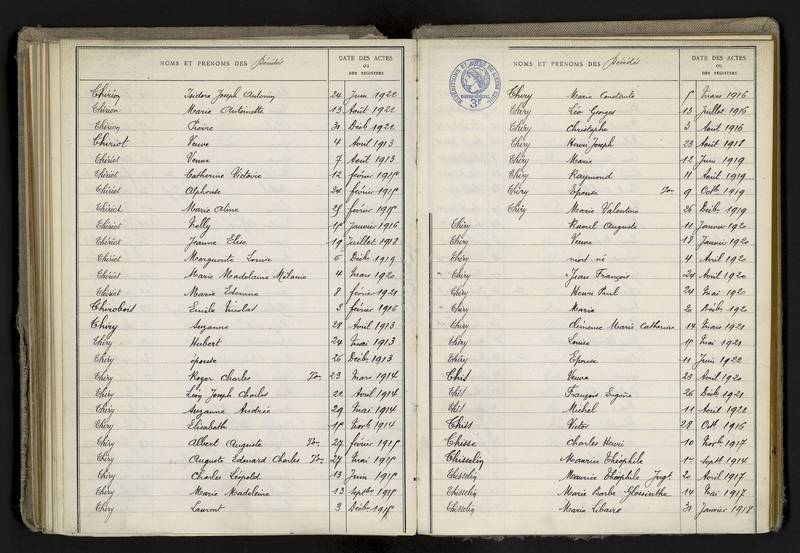 NOMS ET PRÉNOMS DES Décédés
DATE DES ACTES
OU
DES REGISTRES
Chérion Isidore Joseph Antonin 24 Juin 1922
Chérion Marie Antoinette 13 Août 1922
Chérion Pierre 31 Déc. 1922
Chériot Veuve 4 Avril 1913
Chériot Veuve 7 Août 1913
Chériot Catherine Victorie 12 février 1915
Chériot Alphonse 24 février 1915
Chériot Marie Aline 25 février 1915
Chériot Nelly 15 Janvier 1916
Chériot Jeanne Elise 19 Juillet 1918
Chériot Marguerite Louise 6 Déc. 1919
Chériot Marie Madelaine Mélanie 4 Mars 1920
Chériot Marie Edonine 8 février 1921
Chirobois Emile Nicolas 3 février 1916
Chéry Suzanne 28 Avril 1913
Chéry Hubert 24 Mai 1913
Chéry épouse 26 Déc. 1913
Chéry Roger Charles 23 Mars 1914
Chéry Léon Joseph Charles 22 Avril 1914
Chéry Suzanne Andrée 29 Mai 1914
Chéry Elisabeth 15 Nov. 1914
Chéry Albert Auguste 27 février 1915
Chéry Auguste Edouard Charles 25 Mai 1915
Chéry Charles Léopold 13 Juin 1915
Chéry Marie Madeleine 13 Sept. 1915
Chéry Laurent 3 Déc. 1915
NOMS ET PRÉNOMS DES Décédés
DATE DES ACTES
OU
DES REGISTRES
Chéry Marie Constante 5 Mars 1916
Chéry Léo Georges 13 Juillet 1916
Chéry Christophe 3 Août 1916
Chéry Henri Joseph 23 Août 1918
Chéry Marie 12 Juin 1919
Chéry Raymond 11 Août 1919
Chéry Epouse 9 Oct. 1919
Chéry Marie Valentine 26 Déc. 1919
Chéry Raoul Auguste 11 Janvier 1920
Chéry Veuve 18 Janvier 1920
Chéry mort-né 4 Avril 1920
Chéry Jean François 24 Avril 1920
Chéry Henri Paul 24 Mai 1920
Chéry Marie 20 Déc. 1920
Chéry Clémence Marie Catherine 14 Mars 1921
Chéry Louise 15 Mai 1921
Chéry Epouse 11 Juin 1922
Chis Veuve 23 Avril 1920
Chis François Eugène 26 Déc. 1921
Chis Michel 11 Avril 1922
Chiss Victor 28 Oct. 1916
Chisse Charles Henri 10 Nov. 1917
Chisselin Maurice Théophile 1er Sept. 1914
Chisselin Maurice Théophile 20 Avril 1917
Chisselin Marie Barbe Glossinthe 14 Mai 1917
Chisselin Marie Libaire 31 Janvier 1918